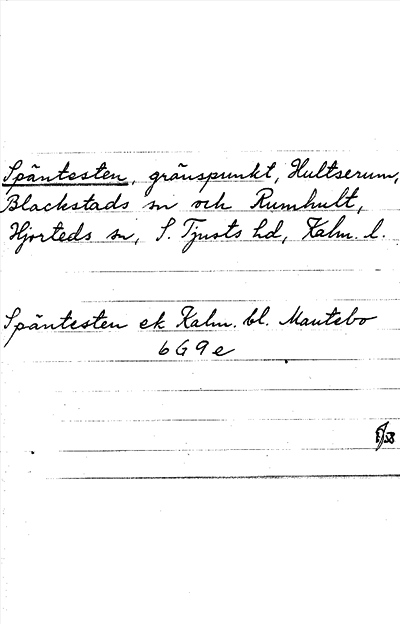 Späntesten, gränspunkt, Hultserum,
Blackstads sn och Rumhult,
Hjorteds sn, S. Tjusts hd, Kalm. l.
Späntesten ek Kalm. bl. Mantebo
6G9e